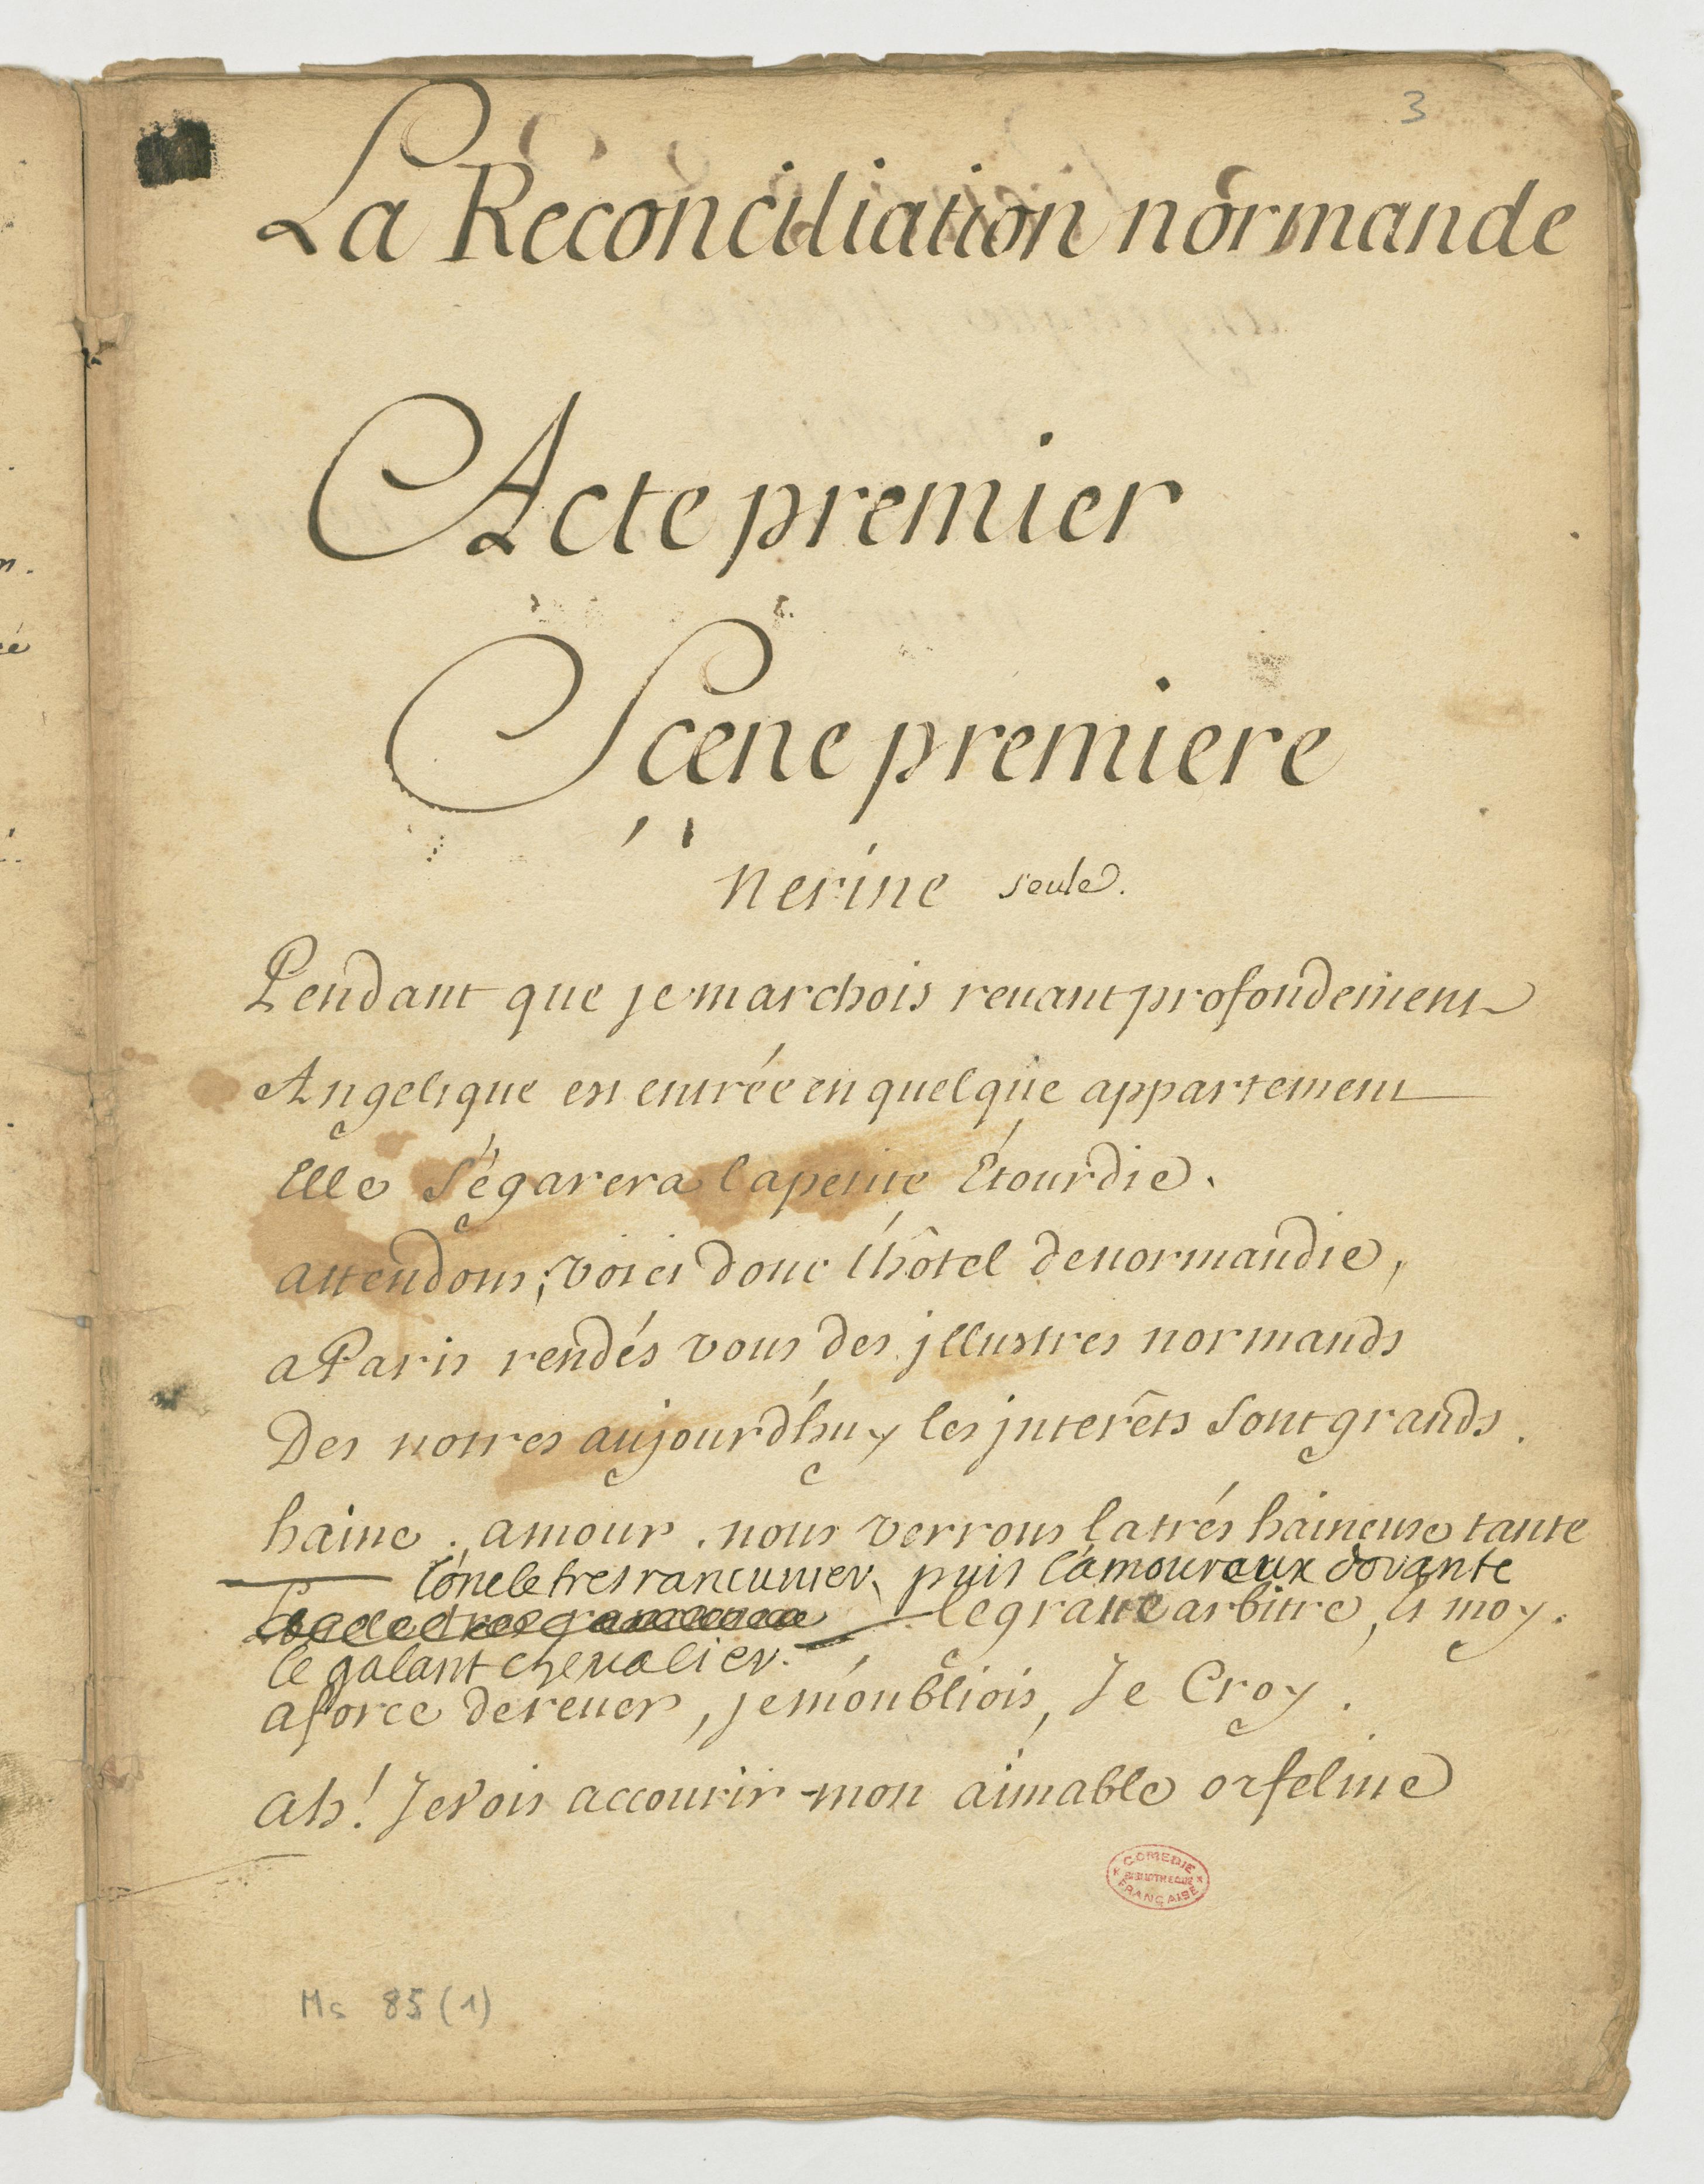 3
La Reconciliation normande
Acte premier
Scene premiere
nerine seule.
Pendant que je marchois revant profondement
Angelique est entrée en quelque appartement
Elle s'égarera la petite Etourdie.
attendons, voici donc l'hôtel de normandie,
a Paris rendés vous des jllustres normands
Des notres aujourd'huy les jnterêts sont grands.
haine, amour, nous verrons la trés haineuse tante
l'oncle tres rancunier, puis l'amoureux dorante
le grand arbitre, et moy.
le galant chevalier.
a force de rever, je m'oubliois, Je Croy.
ah! Je vois accourir mon aimable orfeline
COMEDIE
BIBLIOTHEQUE
FRANÇAISE
Ms 85 (1)